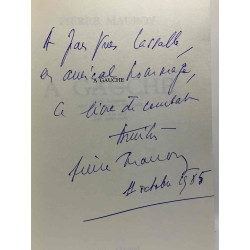 PIERRE MAUROY
À Jean Yves Lassalle,
en amical hommage,
À GAUCHE
ce livre de combat
Pierre Mauroy
octobre 1985